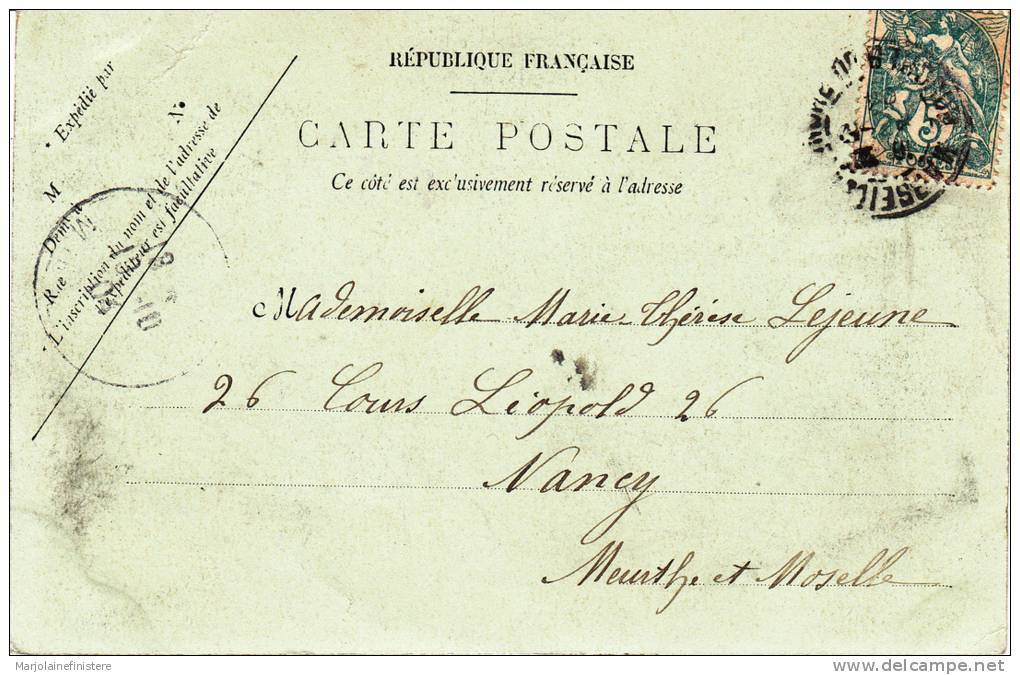 RÉPUBLIQUE FRANÇAISE
CARTE POSTALE
Ce côté est exclusivement réservé à l'adresse
Expédié par
M
Demt à
Rue
N°
L'inscription du nom et de l'adresse de
l'expéditeur est facultative
Mademoiselle Marie-Thérèse Lejeune
26 Cours Léopold 26
Nancy
Meurthe et Moselle
5
Marjolainefinistere
www.delcampe.net